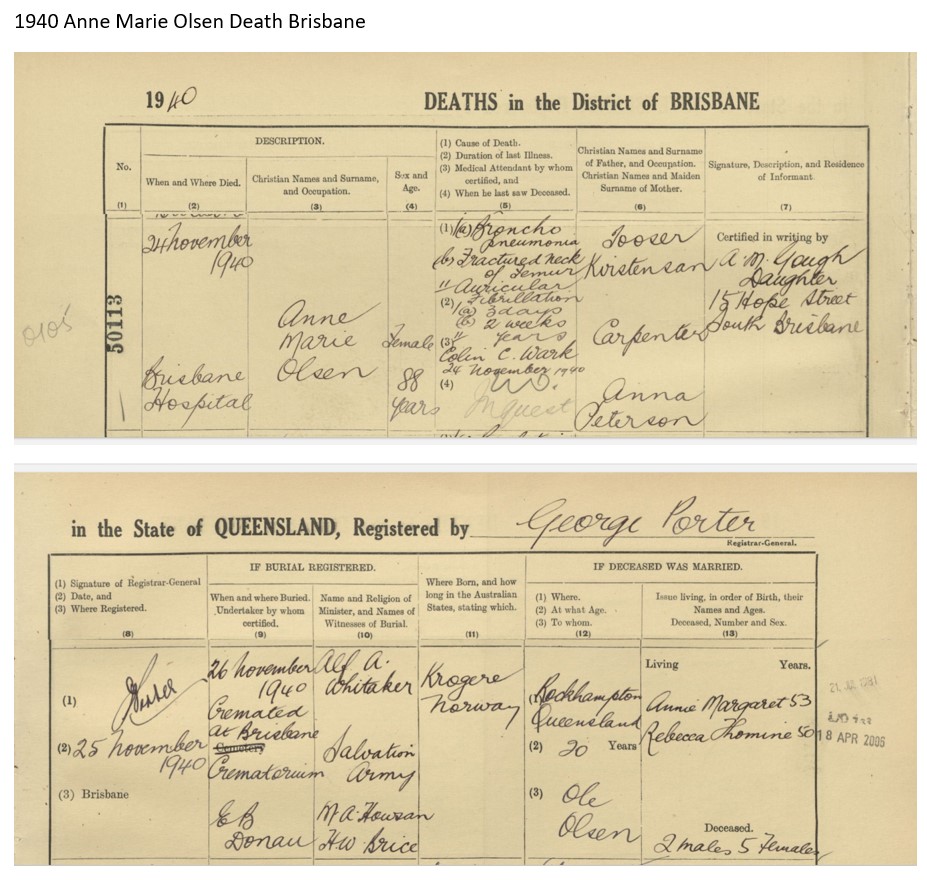 1940 Anne Marie Olsen Death Brisbane
1940
DEATHS in the District of BRISBANE
No.
(1)
DESCRIPTION.
When and Where Died.
(2)
Christian Names and Surname,
and Occupation.
(3)
Sex and
Age.
(4)
(1) Cause of Death.
(2) Duration of last Illness.
(3) Medical Attendant by whom
certified, and
(4) When he last saw Deceased.
(5)
Christian Names and Surname
of Father, and Occupation.
Christian Names and Maiden
Surname of Mother.
(6)
Signature, Description, and Residence
of Informant.
(7)
0105
50113
24 November
1940
Brisbane
Hospital
Anne
Marie
Olsen
Female
88
years
(1) (a) Broncho
pneumonia
(b) Fractured neck
of Femur
" Auricular
Fibrillation
(2) 1(a) 3 days
(b) 2 weeks
" Years
(3) Colin C. Wark
24 November 1940
(4)
Inquest
Tooser
Kristensan
Carpenter
Anna
Peterson
Certified in writing by
A. M. Gough
Daughter
15 Hope Street
South Brisbane
in the State of QUEENSLAND, Registered by George Porter
Registrar-General.
(1) Signature of Registrar-General
(2) Date, and
(3) Where Registered.
(8)
IF BURIAL REGISTERED.
When and where Buried.
Undertaker by whom
certified.
(9)
Name and Religion of
Minister, and Names of
Witnesses of Burial.
(10)
Where Born, and how
long in the Australian
States, stating which.
(11)
IF DECEASED WAS MARRIED.
(1) Where.
(2) At what Age.
(3) To whom.
(12)
Issue living, in order of Birth, their
Names and Ages.
Deceased, Number and Sex.
(13)
(1)
(2) 25 November
1940
(3) Brisbane
26 November
1940
Cremated
at Brisbane
Cemetery
Crematorium
E B
Donau
Alf A.
Whitaker
Salvation
Army
M A Howsan
H W Brice
Krogere
Norway
(1) Rockhampton
Queensland
(2) 20 Years
(3) Ole
Olsen
Living Years.
Annie Margaret 53
Rebecca Thomine 50
Deceased.
2 males 5 Females
18 APR 2006